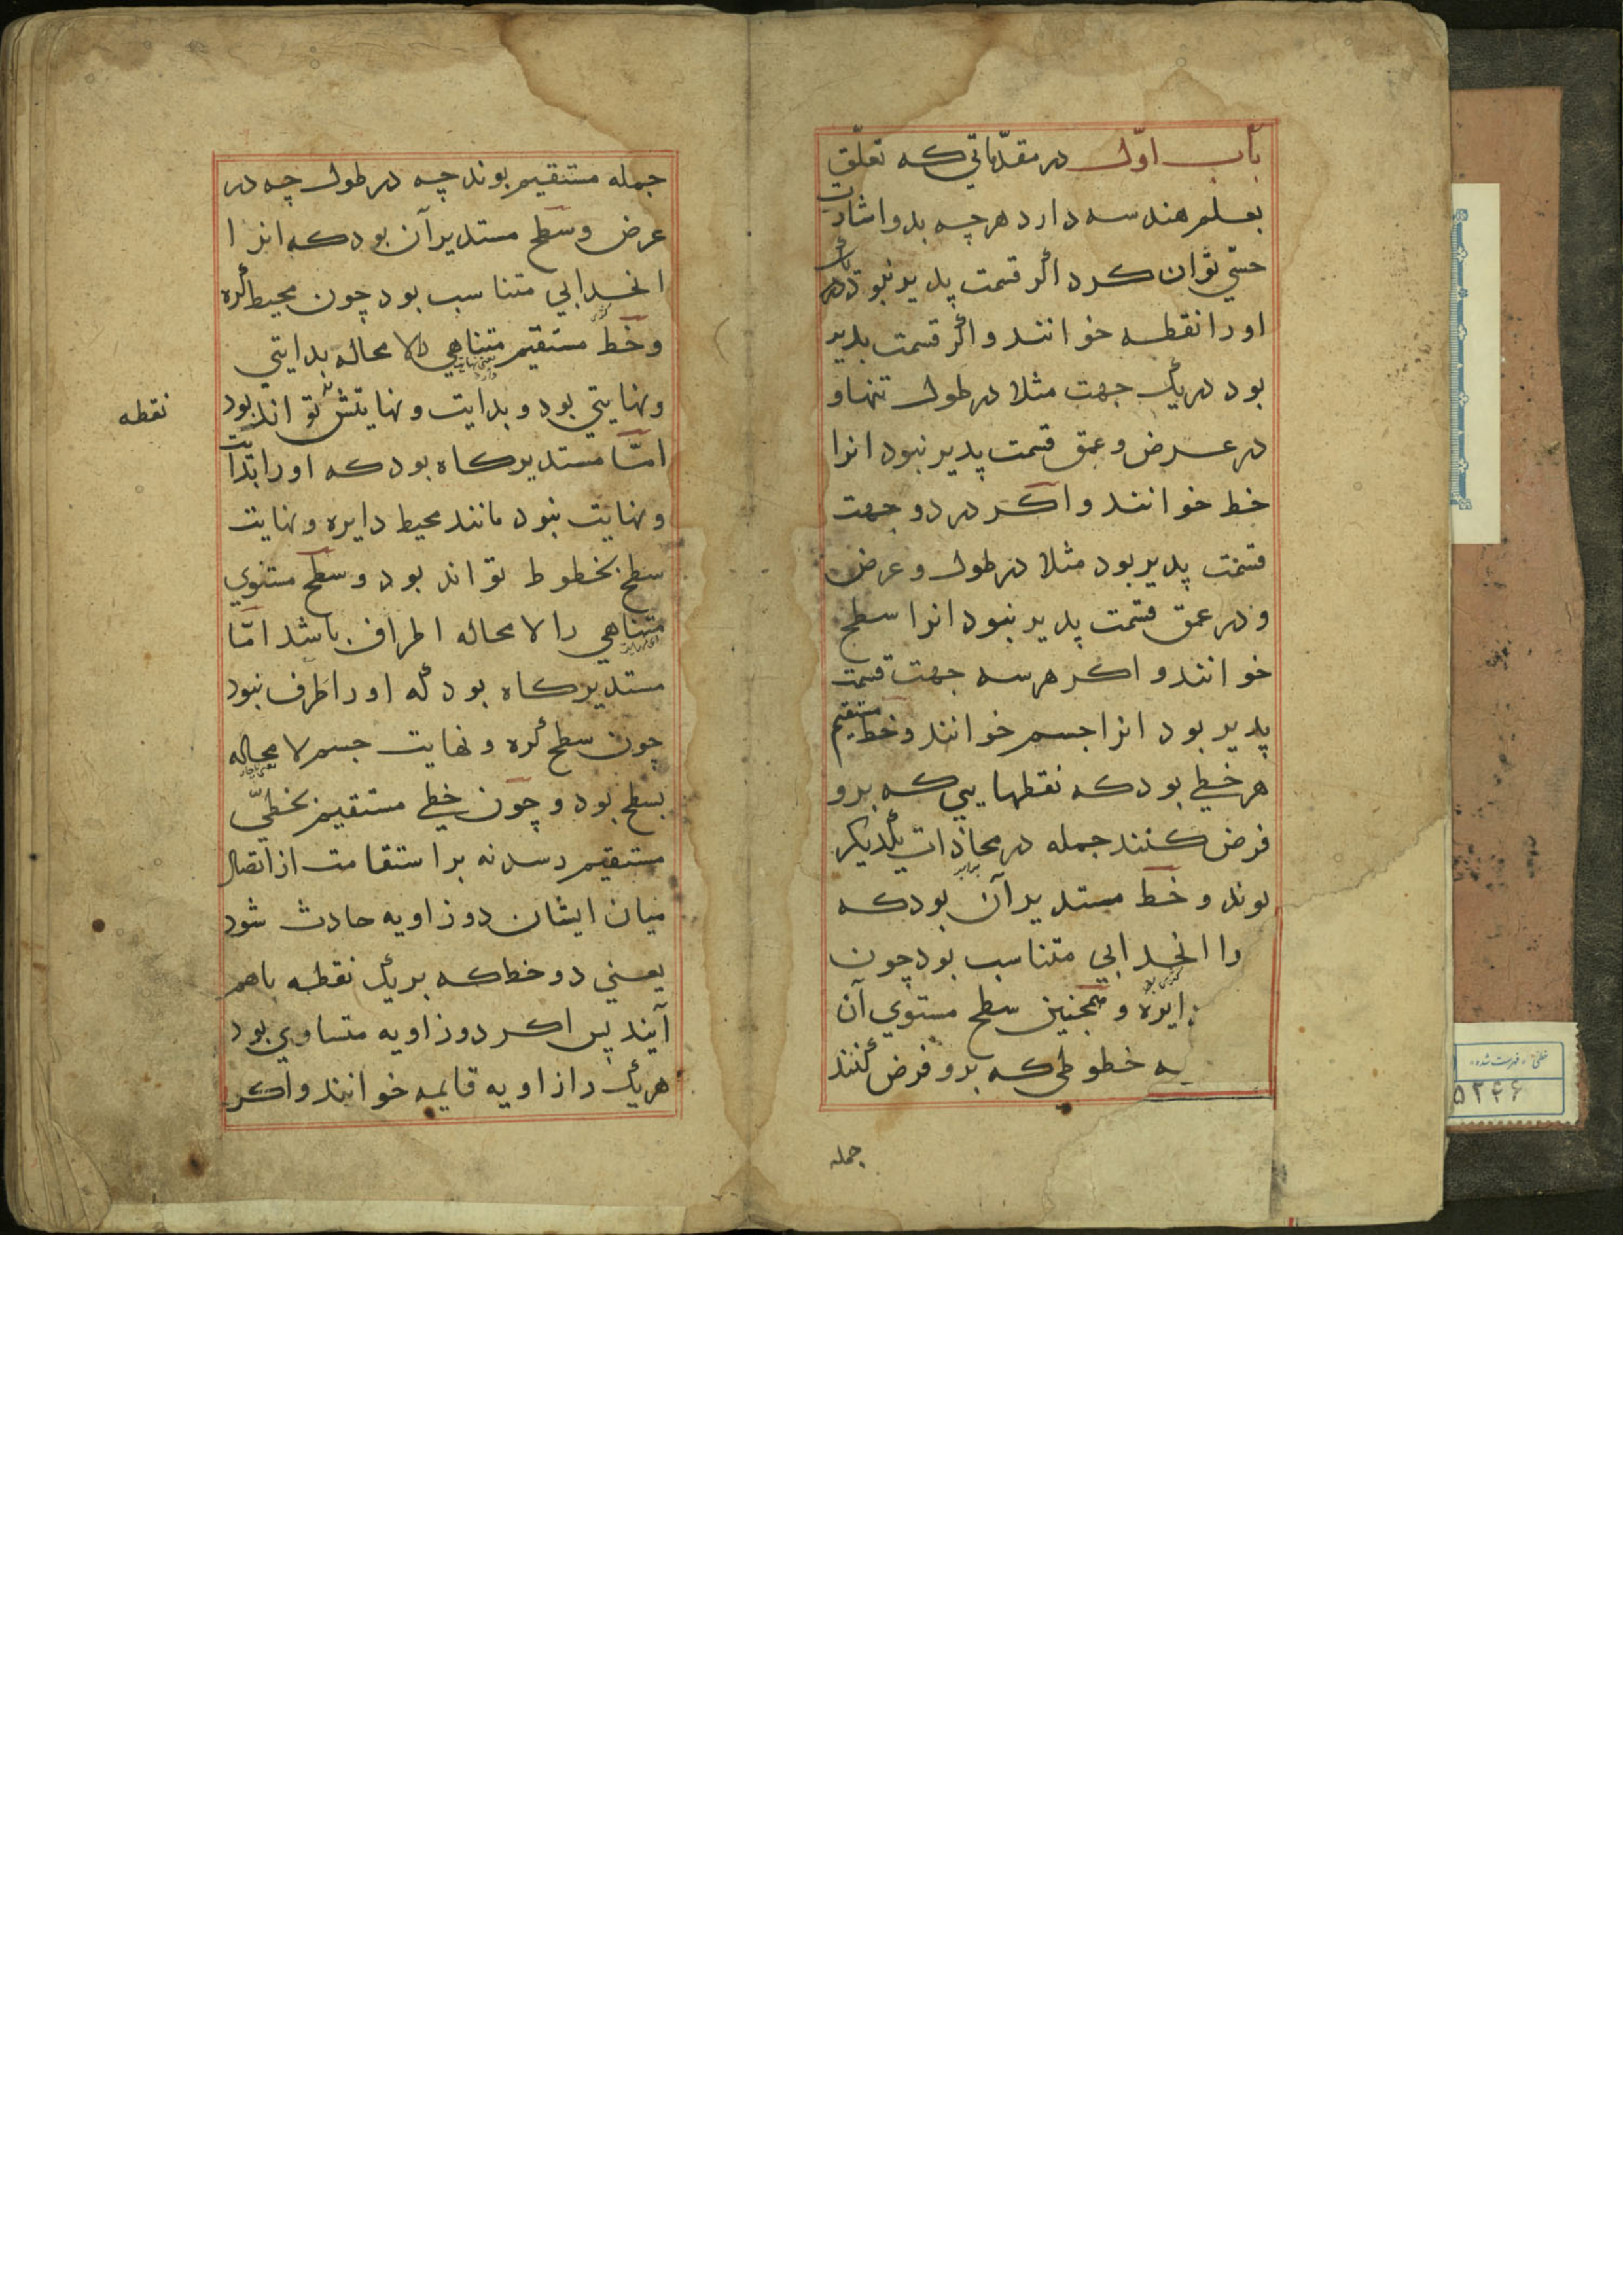 باب اوّل در مقدّماتی که تعلّق
بعلم هندسه دارد هرچه بدو اشارت
حسّی توان کرد اگر قسمت پذیر نبود
او را نقطه خوانند و اگر قسمت پذیر
بود در یک جهت مثلا در طول تنها و
در عرض و عمق قسمت پذیر نبود انرا
خط خوانند و اکر در دو جهت
قسمت پذیر بود مثلا در طول و عرض
و در عمق قسمت پذیر نبود انرا سطح
خوانند و اکر هر سه جهت قسمت
پذیر بود انرا جسم خوانند و خط مستقیم
هر خطی بود که نقطهایی که برو
فرض کنند جمله در محاذات یکدیکر
بوند و خط مستدیر آن بود که
را انحدابی متناسب بود چون
ایره و همچنین سطح مستوی آن
که خطوطی که برو فرض کنند
جمله
جمله مستقیم بوند چه در طول چه در
عرض و سطح مستدیر آن بود که انرا
انحدابی متناسب بود چون محیط کره
و خط مستقیم متناهی لا محاله بدایتی
و نهایتی بود و بدایت و نهایتش تواند بود
نقطه
امّا مستدیر کاه بود که او را بدایت
و نهایت نبود مانند محیط دایره و نهایت
سطح بخطوط تواند بود و سطح مستوی
متناهی را لا محاله اطراف باشد امّا
مستدیر کاه بود که او را طرف نبود
چون سطح کره و نهایت جسم لا محاله
بسطح بود و چون خطی مستقیم بخطیّ
مستقیم رسد نه بر استقامت از اتصال
میان ایشان دو زاویه حادث شود
یعنی دو خط که بر یک نقطه باهم
آیند پس اکر دو زاویه متساوی بود
هر یک را زاویه قایمه خوانند و اکر